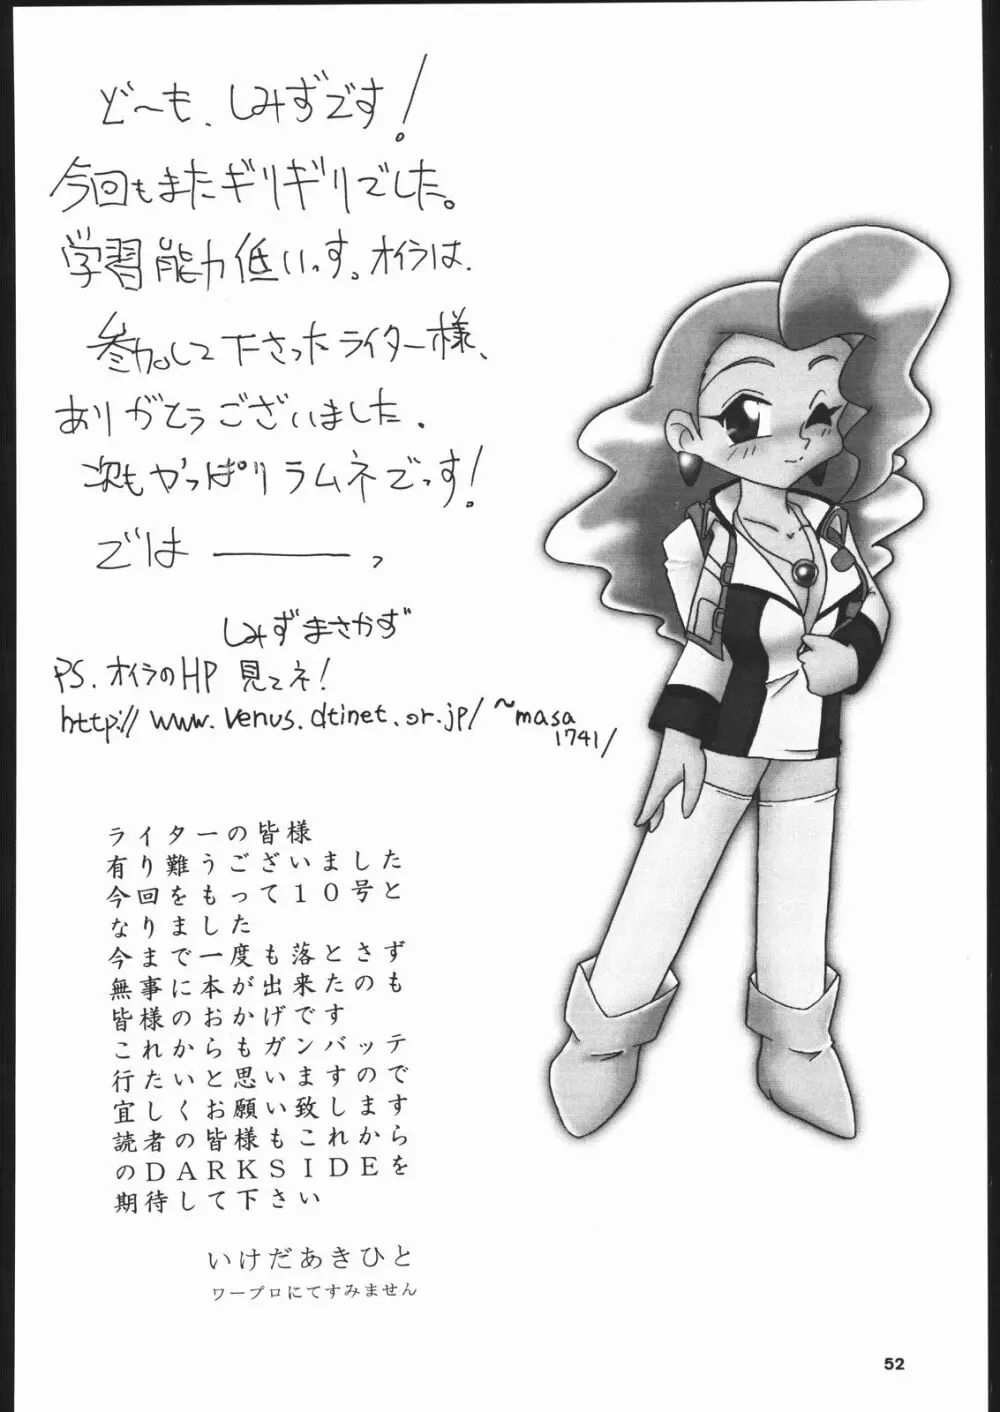 ど〜も、しみずです!
今回もまたギリギリでした。
学習能力低いっす。オイラは、
参加して下さったライター様、
ありがとうございました。
次もやっぱりラムネでっす!
では――っ
しみずまさかず
PS、オイラのHP見てネ!
http://www.venus.dtinet.or.jp/~masa
1741/
ライターの皆様
有り難うございました
今回をもって10号と
なりました
今まで一度も落とさず
無事に本が出来たのも
皆様のおかげです
これからもガンバッテ
行たいと思いますので
宜しくお願い致します
読者の皆様もこれから
のDARKSIDEを
期待して下さい
いけだあきひと
ワープロにてすみません
52